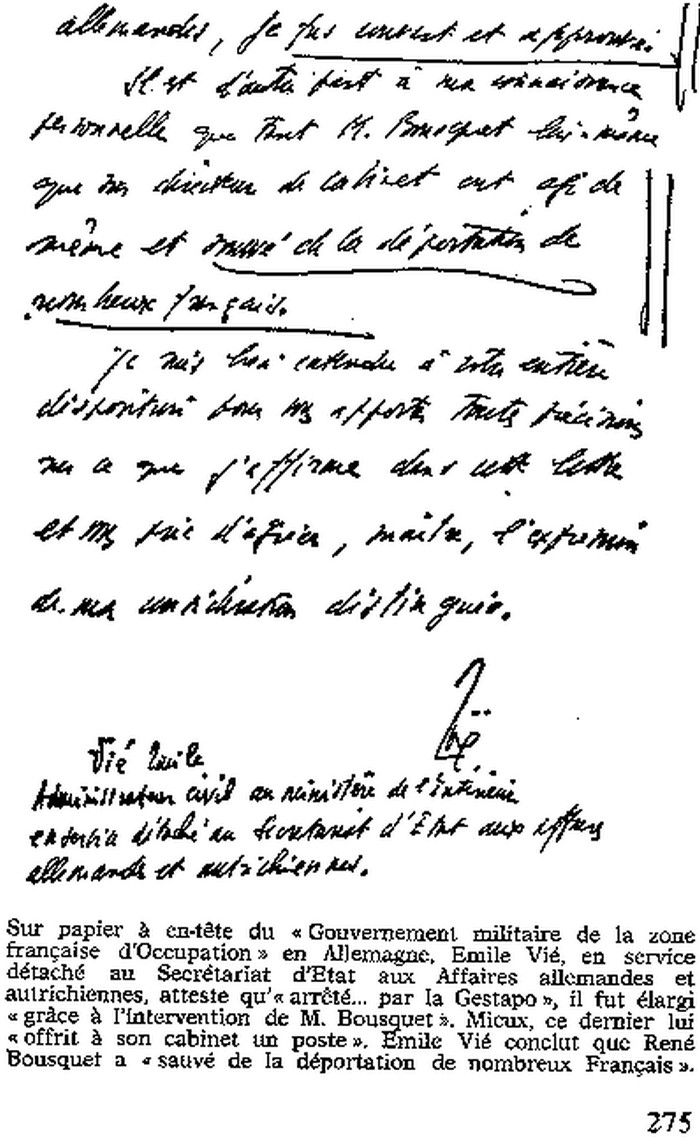 allemandes, je fus couvert et approuvé.
Il est d'autre part à ma connaissance
personnelle que tant M. Bousquet lui-même
que son directeur de cabinet ont agi de
même et sauvé de la déportation de
nombreux français.
Je suis bien entendu à votre entière
disposition pour vous apporter toutes précisions
sur ce que j'affirme dans cette lettre
et vous prie d'agréer, maître, l'expression
de ma considération distinguée.
Vié
Vié Emile
Administrateur civil au ministère de l'Intérieur
en service détaché au Secretariat d'Etat aux affaires
allemandes et autrichiennes.
Sur papier à en-tête du « Gouvernement militaire de la zone
française d'Occupation » en Allemagne, Emile Vié, en service
détaché au Secrétariat d'Etat aux Affaires allemandes et
autrichiennes, atteste qu'« arrêté... par la Gestapo », il fut élargi
« grâce à l'intervention de M. Bousquet ». Mieux, ce dernier lui
« offrit à son cabinet un poste ». Emile Vié conclut que René
Bousquet a « sauvé de la déportation de nombreux Français ».
275